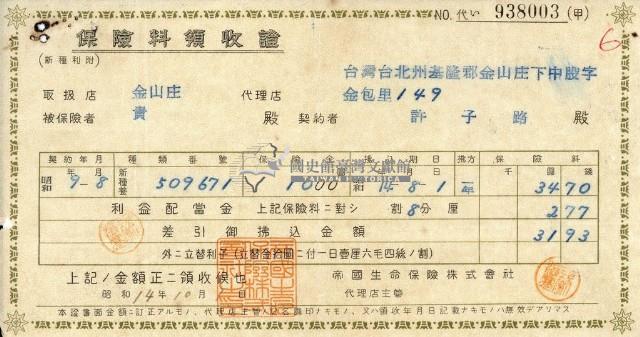 NO. 代い 938003 (甲)
保險料領收證
(新種利附)
6
台灣台北州基隆郡金山庄下中股字
取扱店 金山庄 代理店 金包里149
被保險者 貴 殿 契約者 許子路 殿
國史館臺灣文獻館
TAIWAN HISTORICA
契約年月 種類番號 保險金 拂込期日 拂方 保險料
年 月 円 年 月 日 千 圓 錢
昭和 9-8 新種養 509671 1000 昭和 14-8-1 年 34 70
利益配當金 上記保險料ニ對シ 割 8分 厘 2 77
差引御拂込金額 31 93
外ニ立替利子(立替金拾圓ニ付一日壹厘六毛四絲ノ割)
上記ノ金額正ニ領收候也 帝國生命保險株式會社
昭和14年10月 日 代理店主管
本證書面金額ニ訂正アルモノ、代理店主管人記名調印ナキモノ、又ハ領收年月日記載ナキモノハ無效デアリマス